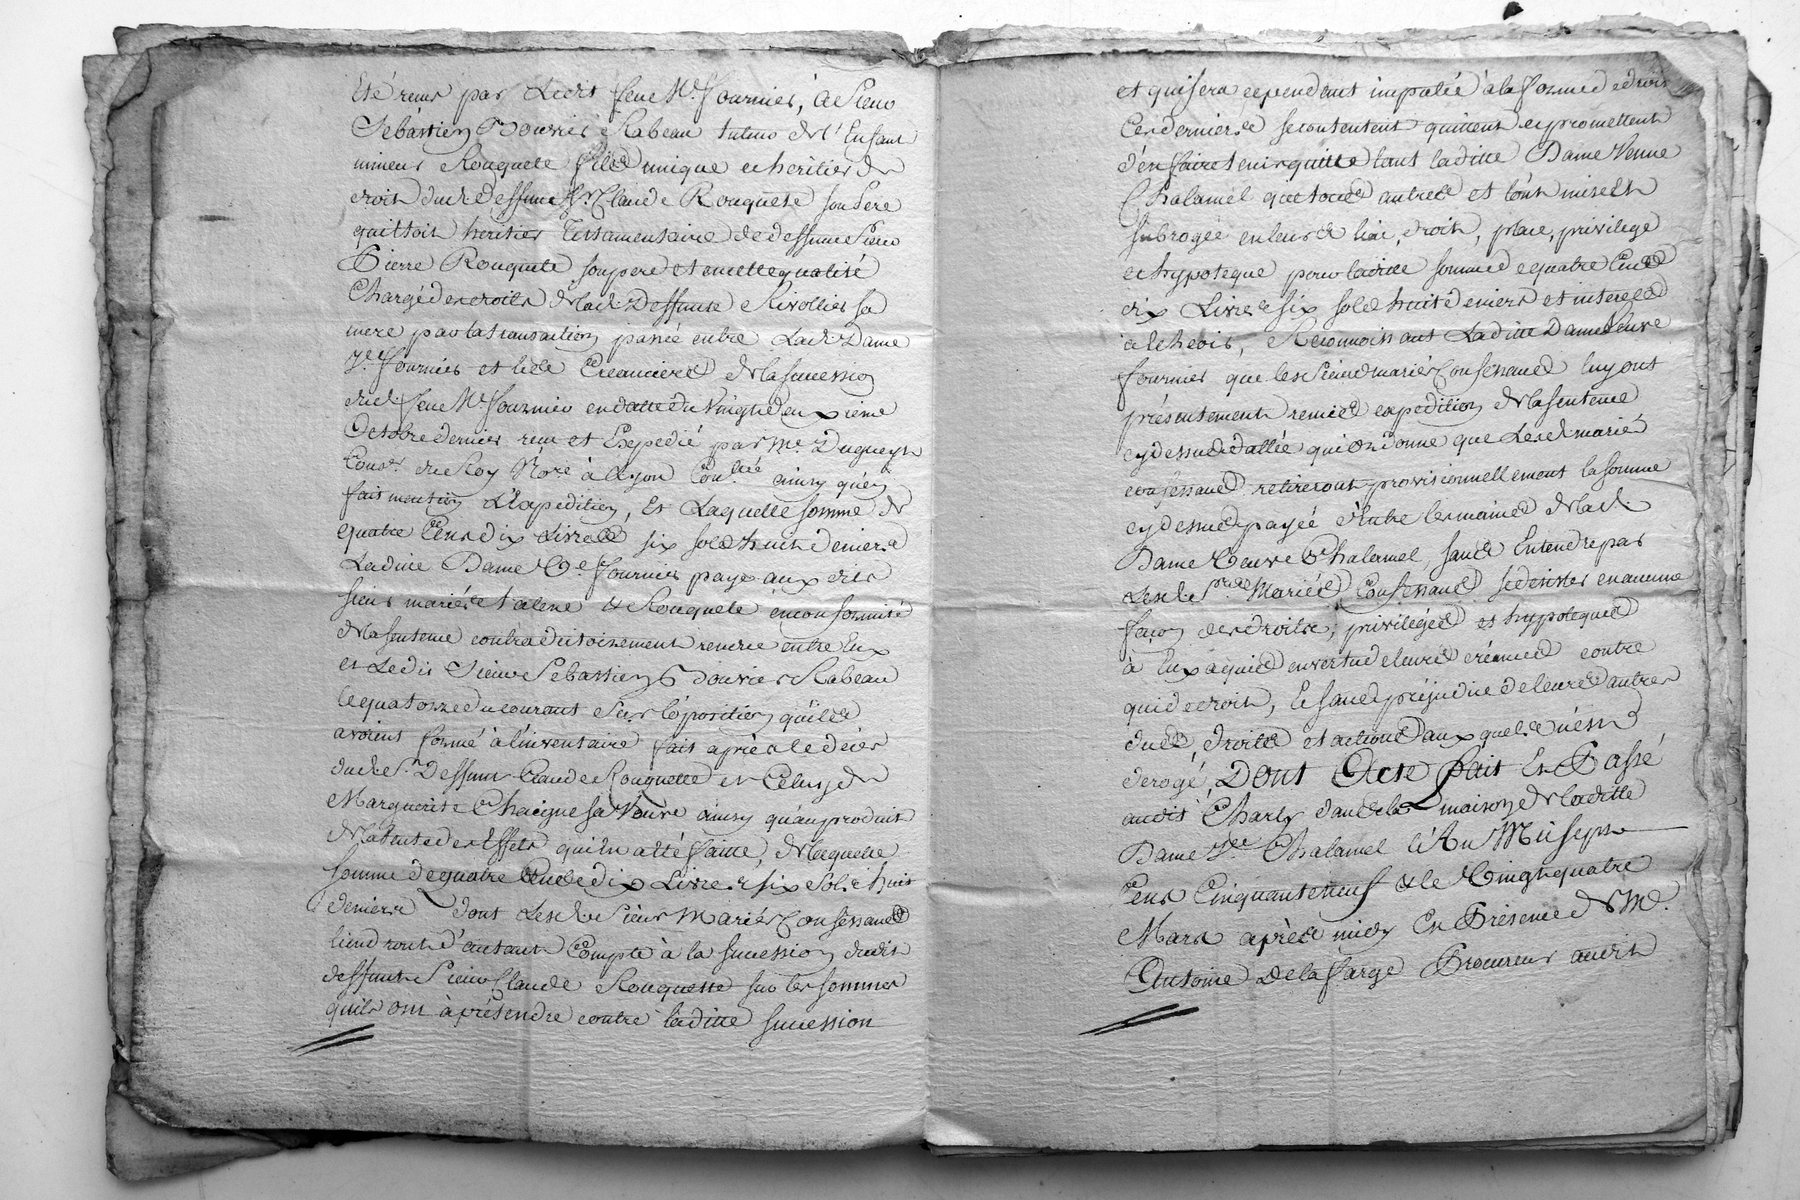 Eté remis par Ledit feue Mr. fournier, à Sieur
Sébastien Bouvier Rabeau tuteur de l'Enfant
mineur Rouquete fille unique et heritier de
droit dud. deffunt Sr. Claude Rouquete son Pere
qui étoit heritier Testamentaire de deffunt Sieur
Pierre Rouquete son pere et en cette qualité
Chargé des droits de lad. Deffunte Rivollier sa
mere par la transaction passée entre Lad. Dame
Ve. fournier et les Créanciers de la succession
dud. feue Mr. fournier en datte du Vingt deuxieme
Octobre dernier reçu et Expedié par Me. Dugueyt
Conser. du Roy Nore. à Lyon ainsy qu'en
fait mention L'Expedition, Et Laquelle somme de
quatre Cens dix Livres six sols huit deniers
Ladite Dame Ve. fournier paye aux dits
sieur mariés et Rouquete en conformité
de la sentence contradictoirement rendue entre Eux
et Ledit Sieur Sebastien Bouvier Rabeau
le quatorze du courant Sur l'oposition qu'ils
avoient formé à l'inventaire fait après le décès
dud. Sr. Deffunt Claude Rouquette et Celuy de
Marguerite Chaigne sa Veuve ainsy qu'au produit
de la Vente des Effets qui en a été faitte, de laquelle
somme de quatre Cens dix Livres six Sols huit
deniers dont Lesd. Sieur Mariés Confessans
tiendront d'autant Compte à la succession dudit
deffunt Sieur Claude Rouquette sur les sommes
qu'ils ont à prétendre contre laditte succession
et qui sera cependant imputée à la forme de droit
Ces derniers se contentent quittent et promettent
d'en faire tenir quitte tant laditte Dame Veuve
Chalamel que tous autres et l'ont mise et
subrogée en leurs lieu, droit, place, privilege
et hypoteque pour ladite somme de quatre Cens
dix Livres six sols huit deniers et interets
à écheoir, Reconnoissant Laditte Dame Veuve
fournier que lesd. Sieurs mariés Confessans luy ont
présentement remis expedition de la sentence
cy dessus dattée qui ordonne que Lesd. mariés
confessans retireront provisionnellement la somme
cy dessus payée d'Entre les mains de lad.
Dame Veuve Chalamel sans Entendre par
Lesd. Srs. Mariés Confessans se desister en aucune
façon des droits, privilèges et hypoteques
à Eux aquis en vertu de leurs créances contre
qui de droit, Et sans préjudice de leurs autres
dues, droits et actions aux quels n'est
derogé, Dont Acte fait Et Passé
audit Charly dans la maison de laditte
Dame Ve. Chalamel L'An Mil sept
Cens Cinquante neuf & le Vingt quatre
Mars après midy En Présence de Me.
Antoine Delafarge Procureur audit